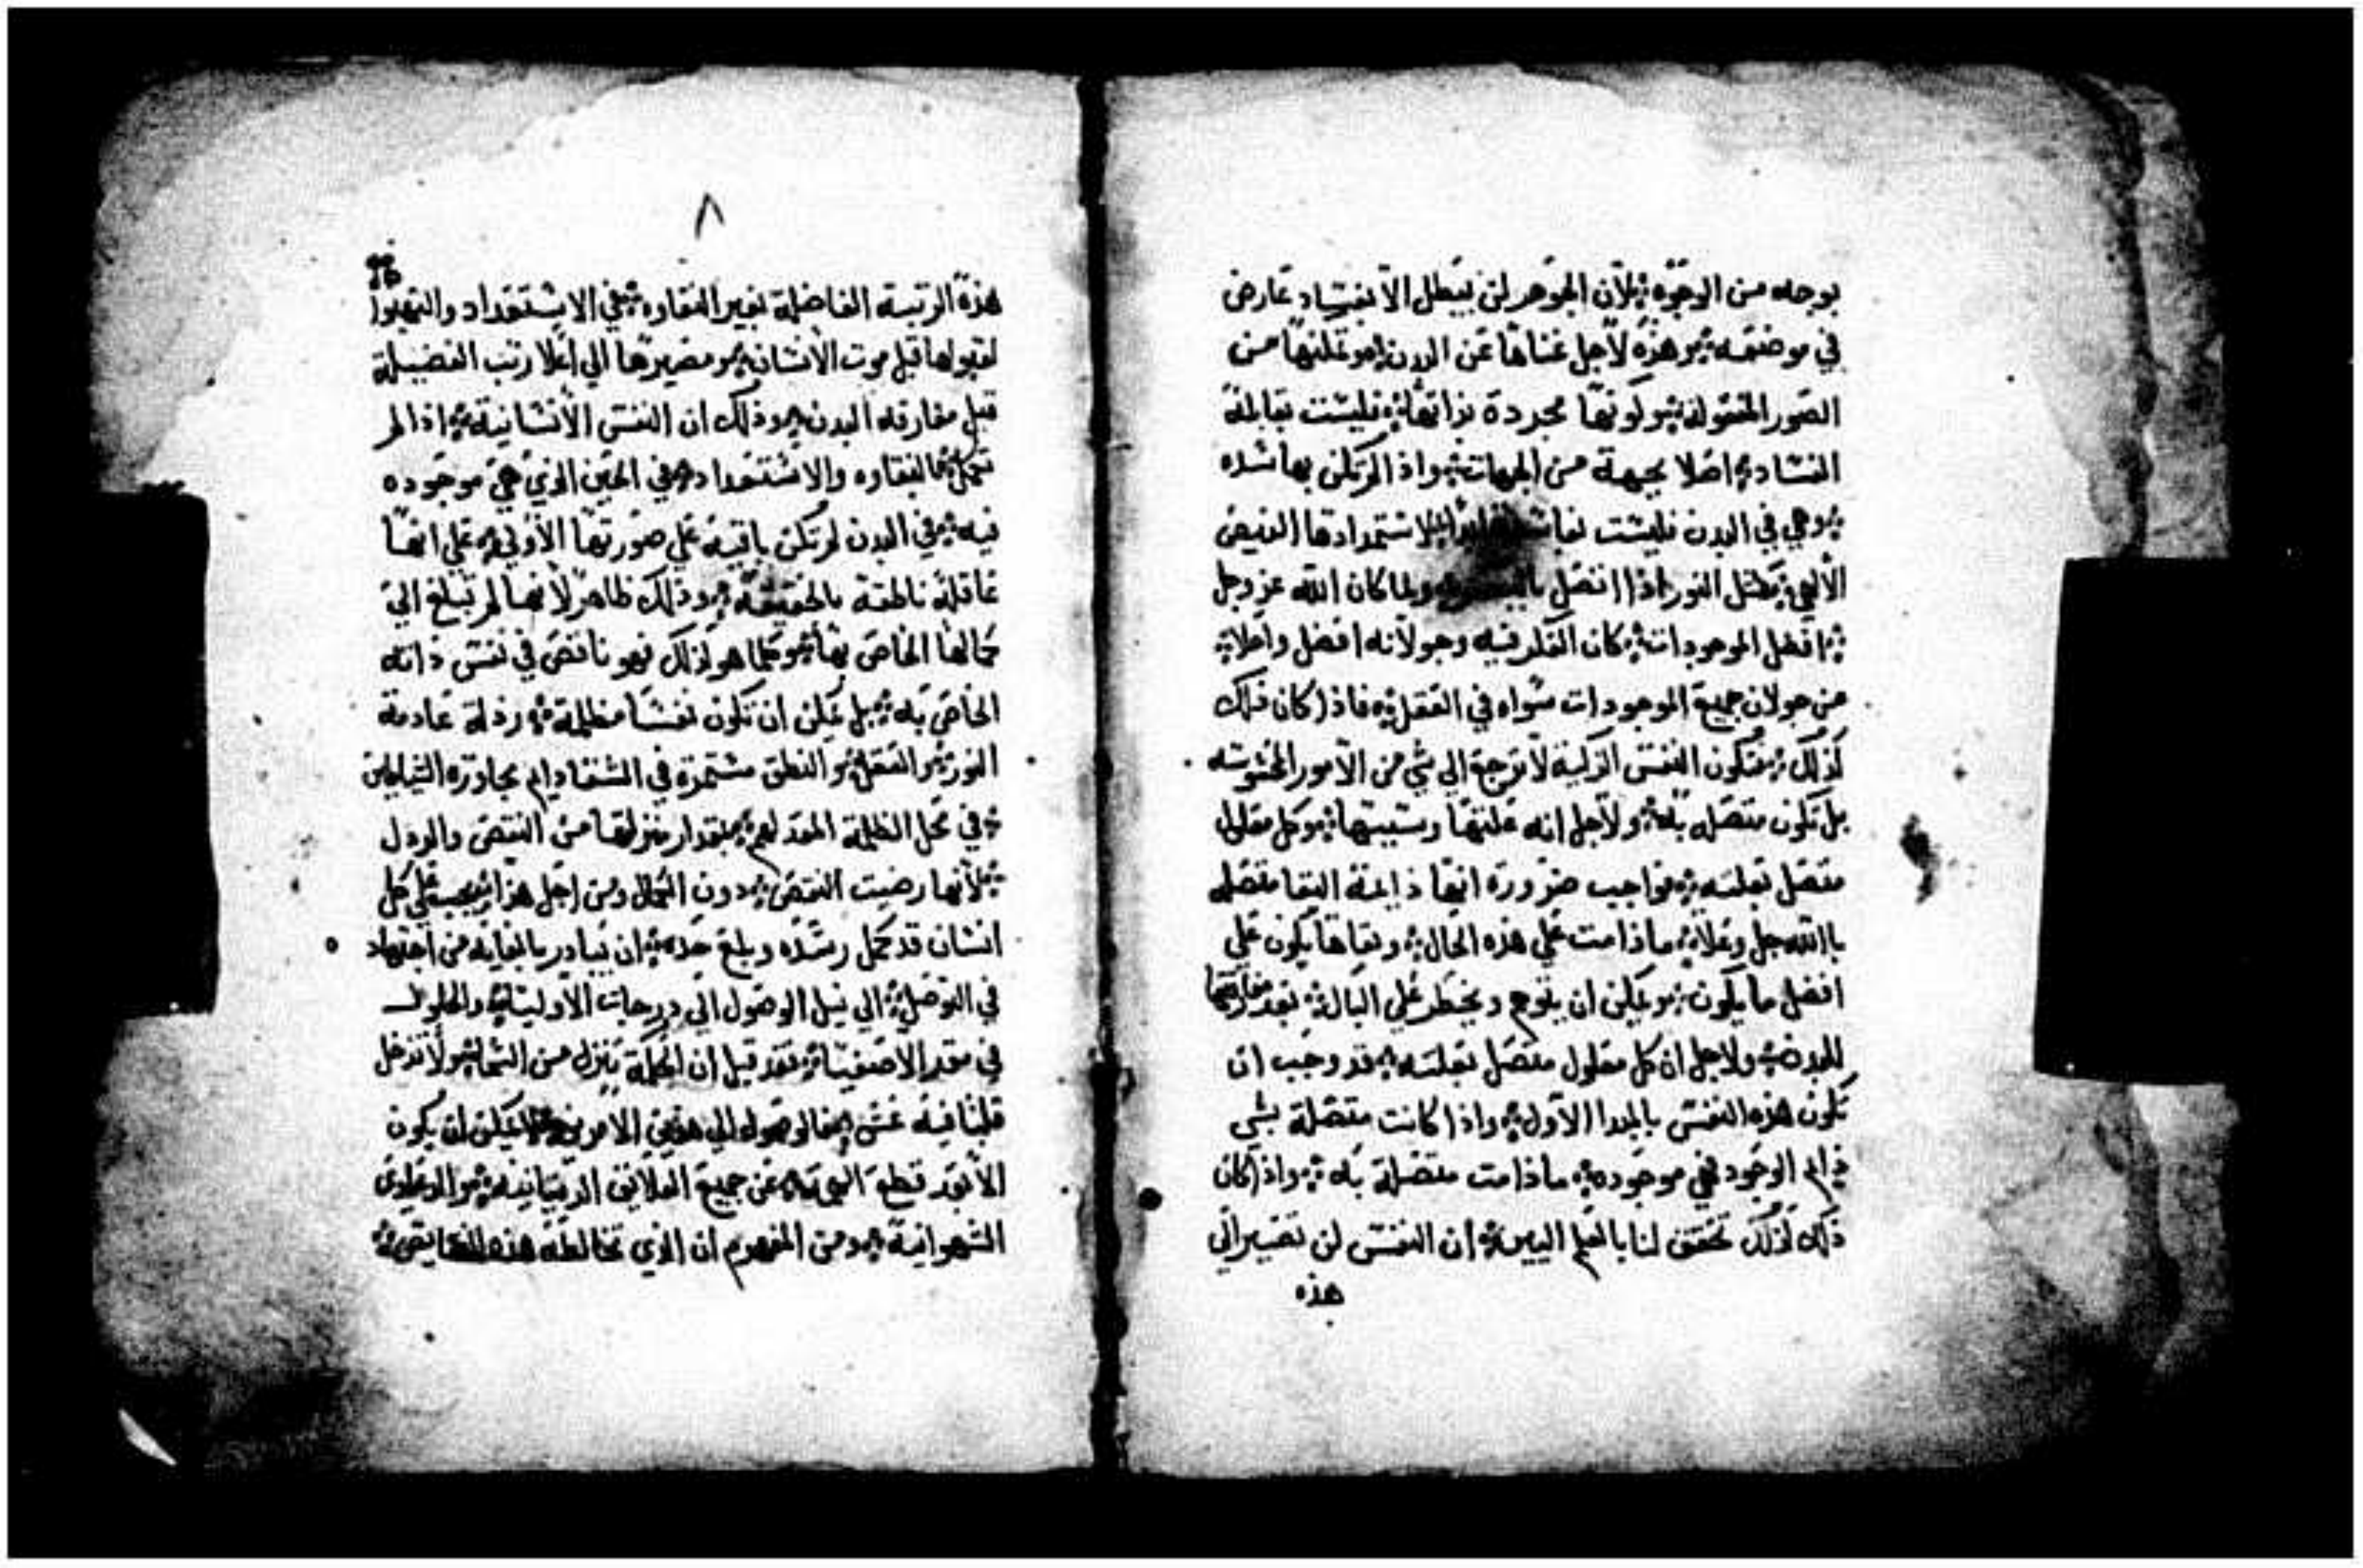 بوجه من الوجوه ؞ لان الجوهر لن يبطل الا بفساد عارض
في موضعه ؞ وهذه لاجل غناها عن البدن ؞ وعلتها من
الصور المعقولة ؞ وكونها مجردة بذاتها ؞ فليست بقابلة
الفساد ؞ اصلا بجهة من الجهات ؞ واذ لم تكن بها شده
؞ وهي في البدن فليست لاستمدادها الفيض
الالهي ؞ مثل النور اذا اتصل ولما كان الله عز وجل
؞ افضل الموجودات ؞ كان الفكر فيه وجولانه افضل واعلا ؞
من جولان جميع الموجودات سواه في العقل ؞ فاذا كان ذلك
كذلك ؞ فتكون النفس الزكية لا ترجع الي شي من الامور المحسوسه
بل تكون متصله به ؞ ولاجل انه علتها وسببها ؞ وكل معلول
متصل بعلته ؞ فواجب ضرورة انها دايمة البقا متصله
باالله جل وعلا ؞ ماذامت علي هذه الحال ؞ وبقاها يكون علي
افضل ما يكون ؞ ويمكن ان يتوهم ويخطر علي البال ؞ بعد مفارقتها
للبدن ؞ ولاجل ان كل معلول متصل بعلته ؞ قد وجب ان
تكون هذه النفس بالمبدا الاول ؞ واذا كانت متصلة بشي
دايم الوجود فهي موجوده ؞ ماذامت متصلة به ؞ واذا كان
ذلك كذلك تحقق لنا بالعلم اليقين ؞ ان النفس لن تصير الي
هذه
٨
هذة الرتبة الفاضلة بغير النقاوه ؞ في الاستعداد والتهيوا
لقبولها قبل موت الانسان ؞ ومصيرها الي اعلا رتب الفضيلة
قبل مفارقه البدن ؞ وذلك ان النفس الانسانية ؞ اذا لم
تكمل بالنقاوه والاستعداد ؞ في الحين الذي هي موجوده
فيه ؞ في البدن لم تكن باقية علي صورتها الاولي ؞ علي انها
عاقلة ناطقة بالحقيقة ؞ وذلك ظاهر لانها لم تبلغ الي
كمالها الخاص بها ؞ وكلما هو كذلك فهو ناقص في نفس ذاته
الخاص به ؞ بل يمكن ان تكون نفسا مظلمة ؞ رذلة عادمة
النور ؞ والعقل ؞ والنطق مستمرة في الشقا دايم مجاورة الشياطين
؞ في محل الظلمة المعد لهم ؞ بمقدار منزلتها من النقص والرذل
؞ لانها رضيت النقص ؞ دون الكمال ومن اجل هذا ؞ يجب علي كل
انسان قد كمل رشده وبلغ حده ؞ ان يبادر بالغايه من اجتهاد
في التوصل ؞ الي نيل الوصول الي درجات الاوليا ؞ والحلول
في مقر الاصفيا ؞ فقد قيل ان الحكمة تنزل من السما ؞ ولا تدخل
قلبا فيه غش ؞ فالوصول الي هذين الامرين يمكن ان يكون
الا بعد قطع عن جميع العلايق الدنيانية ؞ والدواعي
الشهوانية ؞ ومن المفهوم ان الذي تخالطة هذه ؞